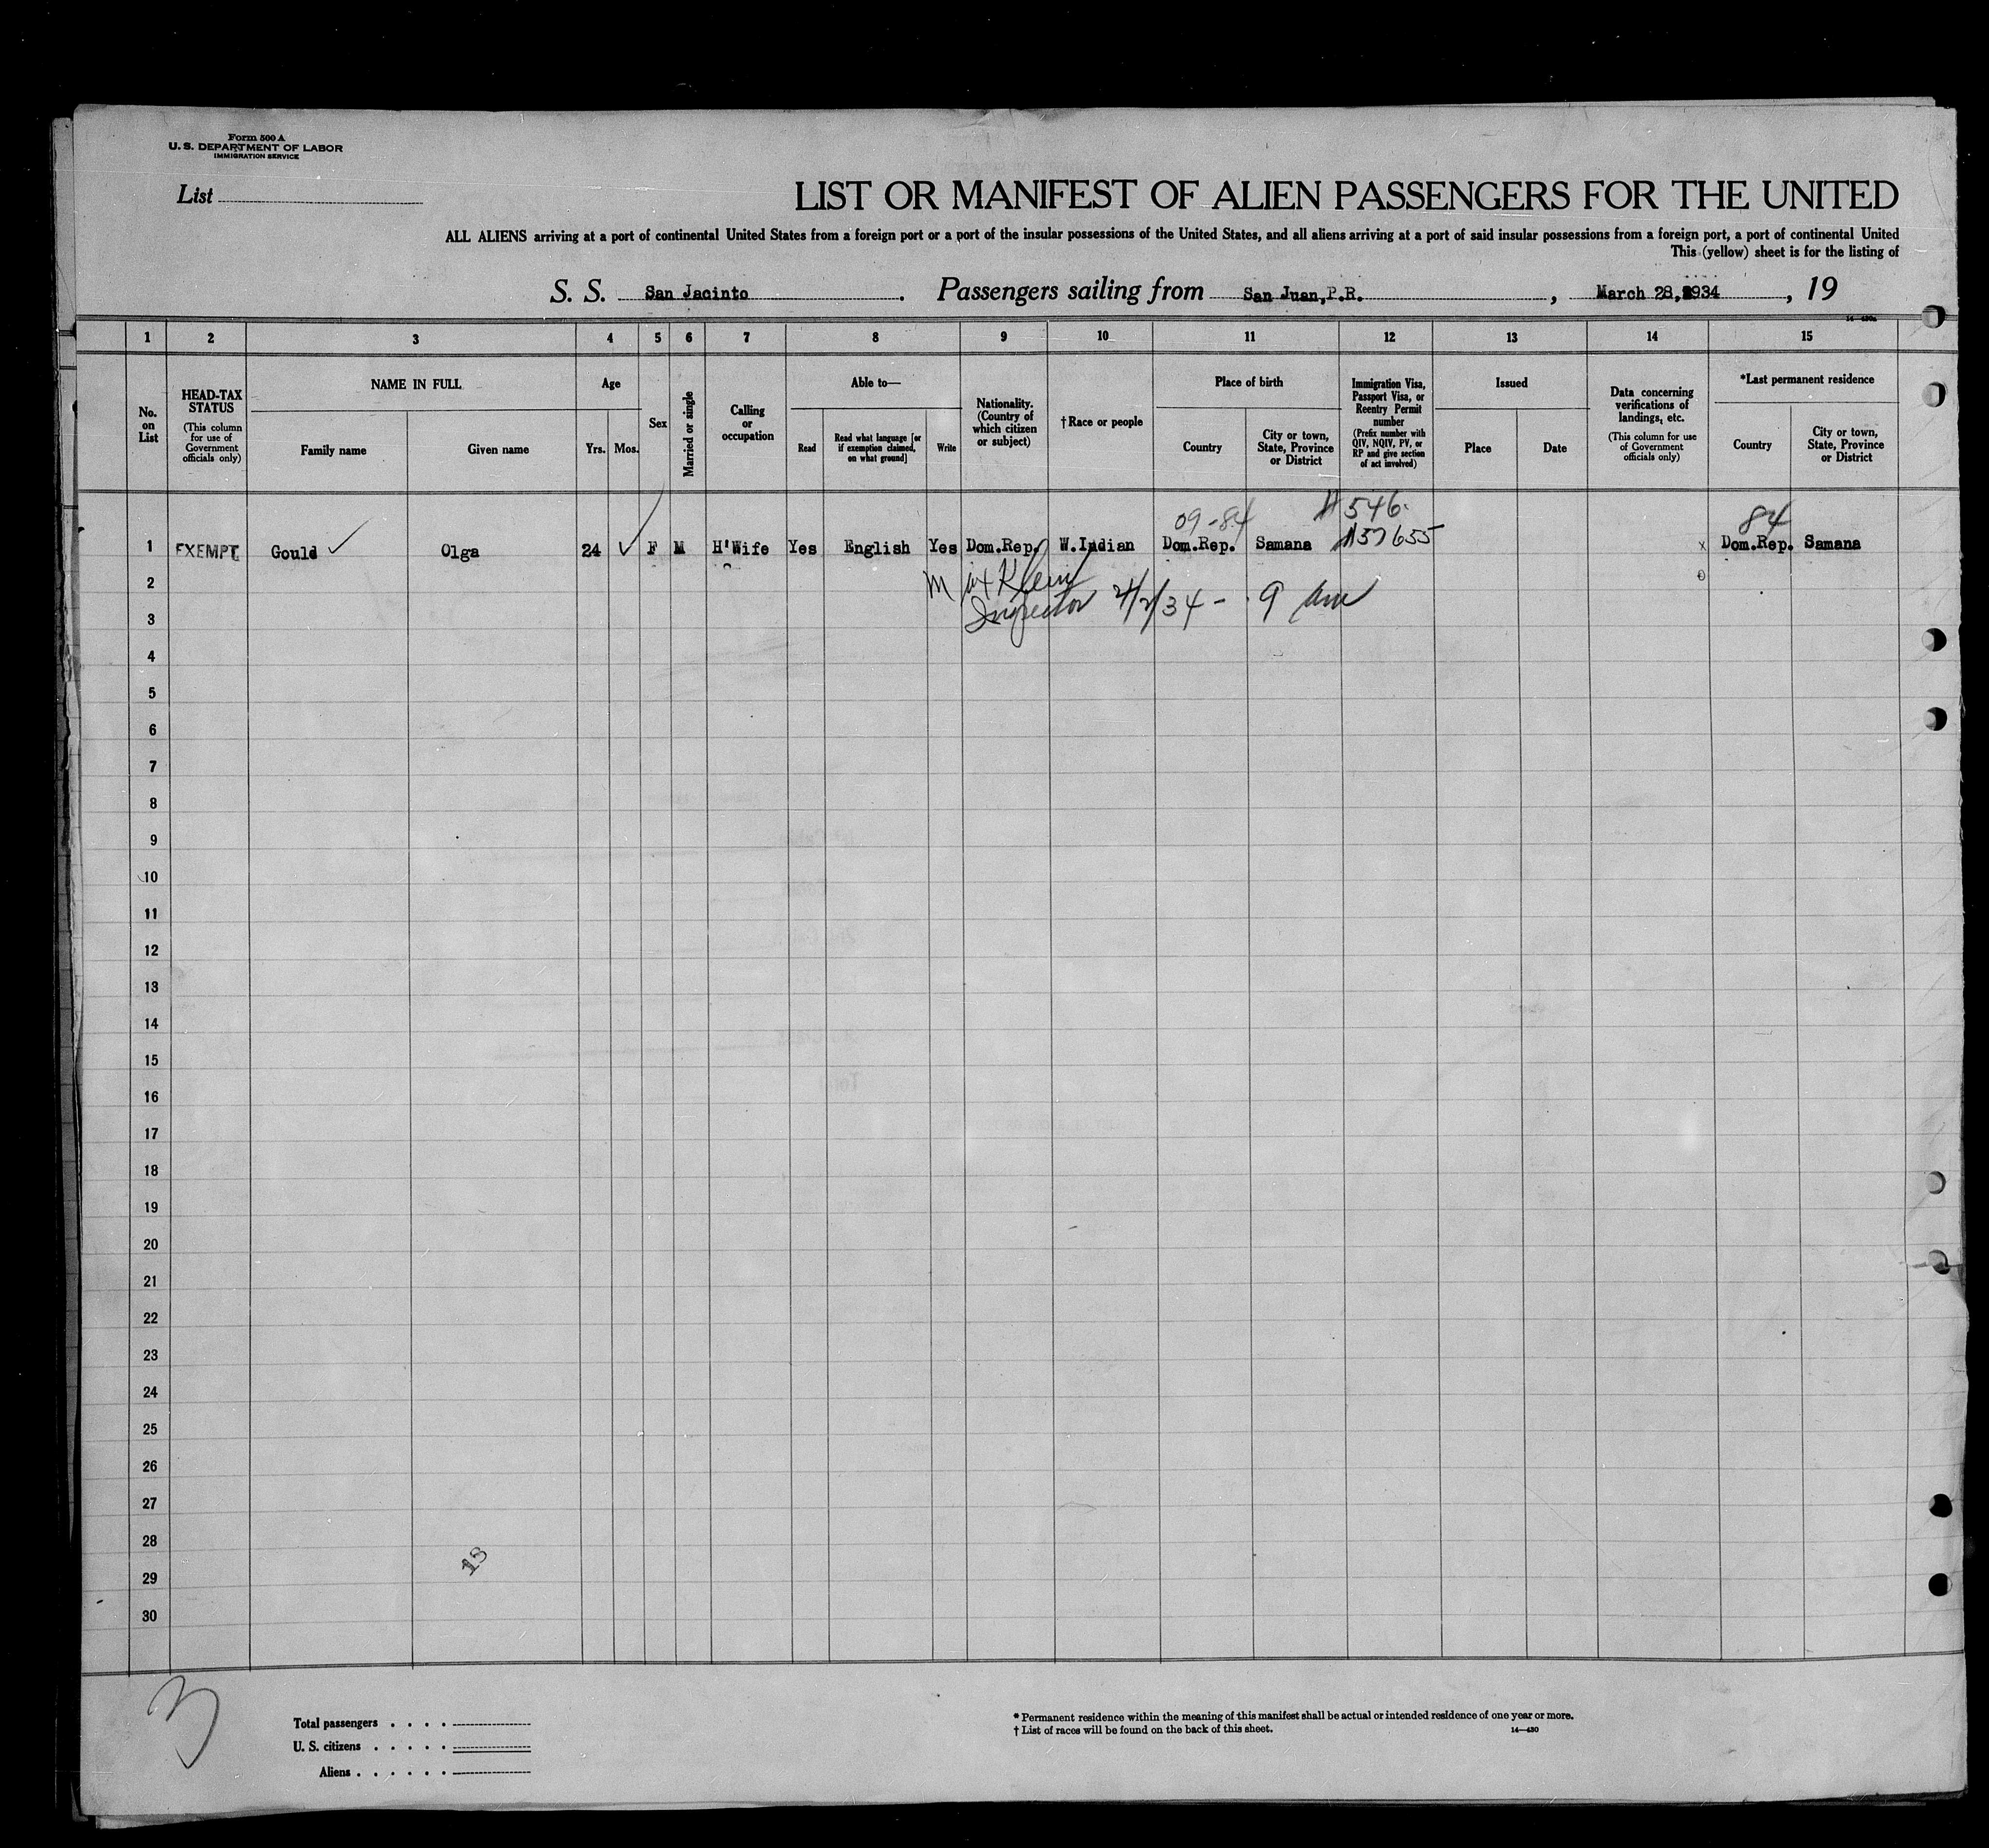 Form 500 A
U. S. DEPARTMENT OF LABOR
IMMIGRATION SERVICE
List
LIST OR MANIFEST OF ALIEN PASSENGERS FOR THE UNITED
ALL ALIENS arriving at a port of continental United States from a foreign port or a port of the insular possessions of the United States, and all aliens arriving at a port of said insular possessions from a foreign port, a port of continental United
This (yellow) sheet is for the listing of
S. S. San Jacinto. Passengers sailing from San Juan,P.R., March 28,1934, 19
1 2 3 4 5 6 7 8 9 10 11 12 13 14 15
No. on List
HEAD-TAX STATUS
(This column for use of Government officials only)
NAME IN FULL
Family name Given name
Age
Yrs. Mos.
Sex
Married or single
Calling or occupation
Able to—
Read
Read what language [or if exemption claimed, on what ground]
Write
Nationality. (Country of which citizen or subject)
†Race or people
Place of birth
Country
City or town, State, Province or District
Immigration Visa, Passport Visa, or Reentry Permit number
(Prefix number with QIV, NQIV, PV, or RP and give section of act involved)
Issued
Place Date
Data concerning verifications of landings, etc.
(This column for use of Government officials only)
*Last permanent residence
Country
City or town, State, Province or District
09-84 #546 84
1 EXEMPT Gould Olga 24 F M H'Wife Yes English Yes Dom.Rep. W.Indian Dom.Rep. Samana #57655 x Dom.Rep. Samana
2 Max Klein
3 Inspector 4/2/34 - 9 am
4
5
6
7
8
9
10
11
12
13
14
15
16
17
18
19
20
21
22
23
24
25
26
27
28
13
29
30
3
Total passengers
U. S. citizens
Aliens
* Permanent residence within the meaning of this manifest shall be actual or intended residence of one year or more.
† List of races will be found on the back of this sheet. 14—430